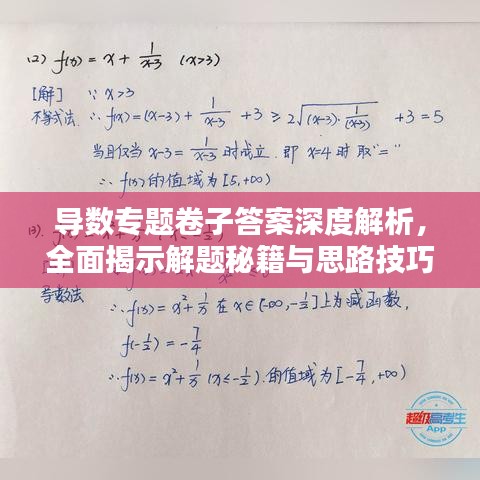 (2) f(x) = x + 1/(x-3) (x>3)
[解] ∵ x>3
不等式法. ∴ f(x)=(x-3) + 1/(x-3) +3 ≥ 2√((x-3)·1/(x-3)) +3=5
当且仅当 x-3 = 1/(x-3) 时成立. 即 x=4 时取"="
∴ f(x)的值域为[5,+∞)
导数专题卷子答案深度解析，
全面揭示解题秘籍与思路技巧
导数法
∴ f(x)= x²+1/x 在 x∈(-∞,-1/2]上为减函数,
f(-1/2) = -7/4
∴ f(x)= x²+1/x (x≤-1/2). 的值域为[-7/4,+∞)
超级高考生
App